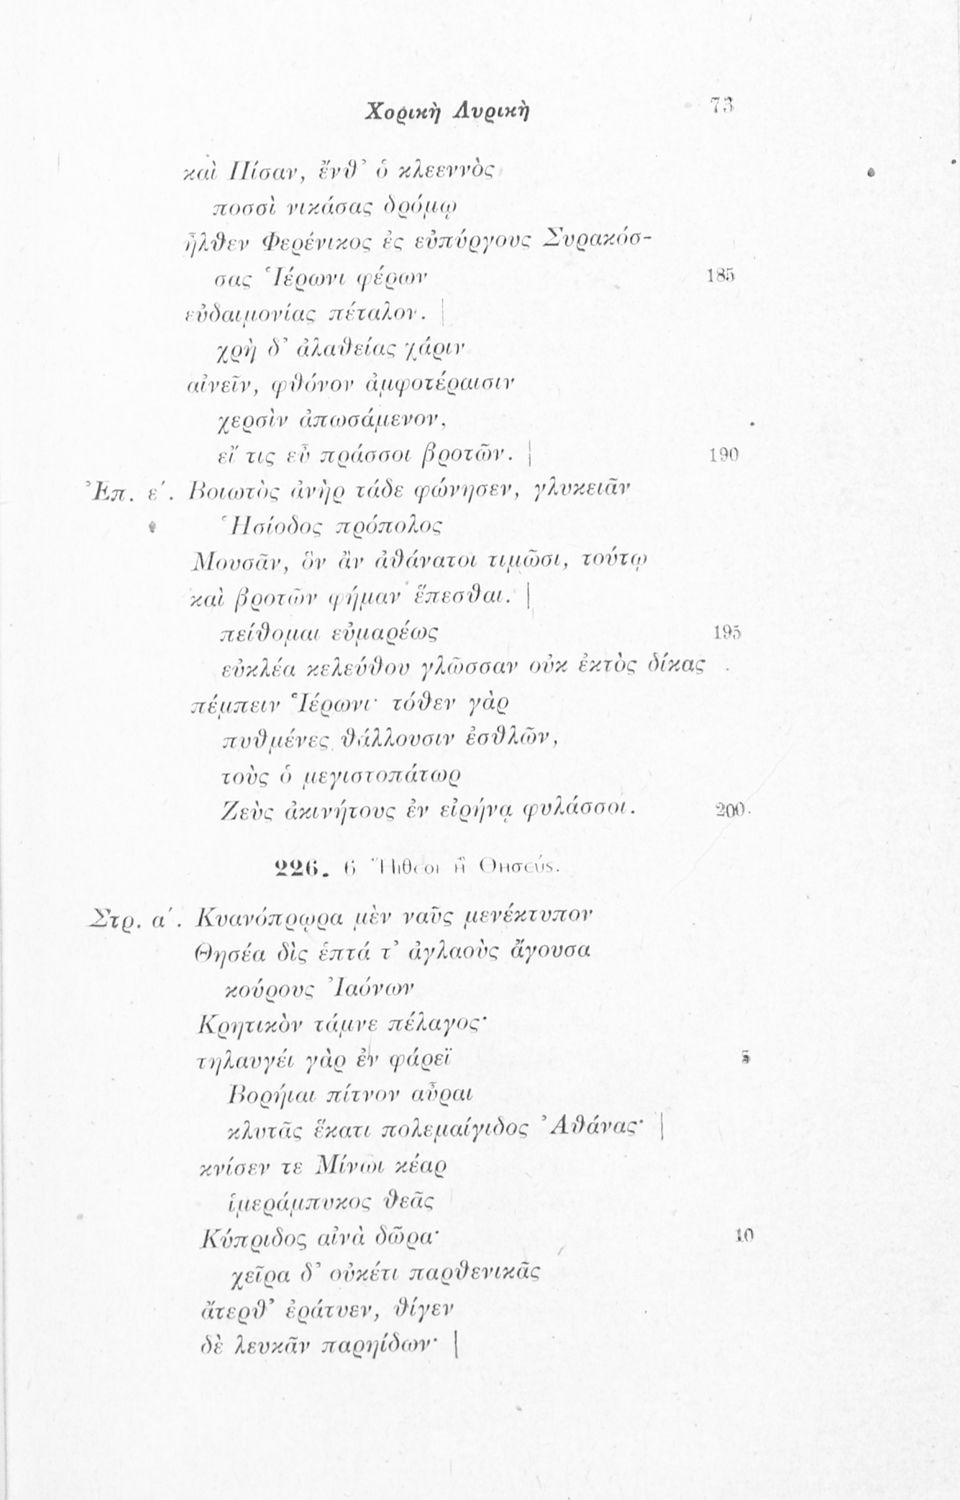 Χορικὴ Λυρικὴ 73
καὶ Πίσαν, ἔνθ’ ὁ κλεεννὸς
ποσσὶ νικάσας δρόμῳ
ἦλθεν Φερένικος ἐς εὐπύργους Συρακόσ-
σας Ἱέρωνι φέρων 185
εὐδαιμονίας πέταλον. |
χρὴ δ’ ἀλαθείας χάριν
αἰνεῖν, φθόνον ἀμφοτέραισιν
χερσὶν ἀπωσάμενον,
εἴ τις εὖ πράσσοι βροτῶν. | 190
Ἐπ. ε΄. Βοιωτὸς ἀνὴρ τάδε φώνησεν, γλυκειᾶν
Ἡσίοδος πρόπολος
Μουσᾶν, ὃν ἂν ἀθάνατοι τιμῶσι, τούτῳ
καὶ βροτῶν φήμαν ἕπεσθαι. |
πείθομαι εὐμαρέως 195
εὐκλέα κελεύθου γλῶσσαν οὐκ ἐκτὸς δίκας
πέμπειν Ἱέρωνι· τόθεν γὰρ
πυθμένες θάλλουσιν ἐσθλῶν,
τοὺς ὁ μεγιστοπάτωρ
Ζεὺς ἀκινήτους ἐν εἰρήνᾳ φυλάσσοι. 200
226. 6 Ἠίθεοι ἢ Θησεύς.
Στρ. α΄. Κυανόπρῳρα μὲν ναῦς μενέκτυπον
Θησέα δὶς ἑπτά τ’ ἀγλαοὺς ἄγουσα
κούρους Ἰαόνων
Κρητικὸν τάμνε πέλαγος·
τηλαυγέι γὰρ ἐν φάρεϊ 5
Βορήιαι πίτνον αὖραι
κλυτᾶς ἕκατι πολεμαίγιδος Ἀθάνας· |
κνίσεν τε Μίνωι κέαρ
ἱμεράμπυκος θεᾶς
Κύπριδος αἰνὰ δῶρα· 10
χεῖρα δ’ οὐκέτι παρθενικᾶς
ἄτερθ’ ἐράτυεν, θίγεν
δὲ λευκᾶν παρηίδων· |